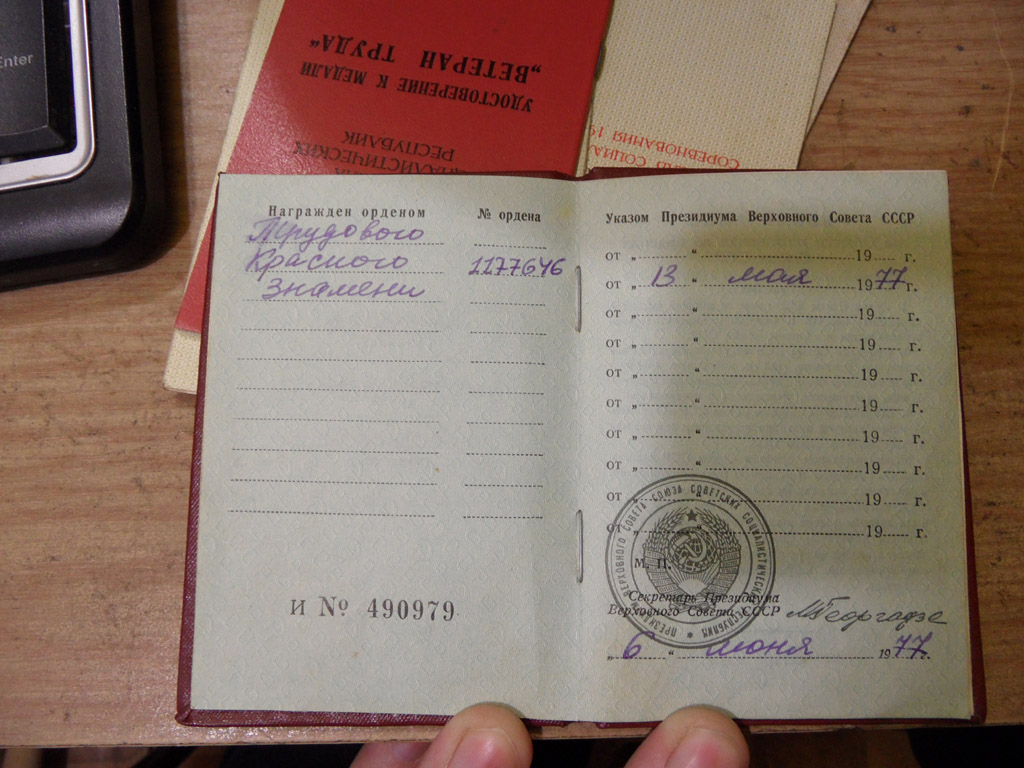 Enter
УДОСТОВЕРЕНИЕ К МЕДАЛИ
„ВЕТЕРАН ТРУДА“
РЕСПУБЛИК
СОРЕВНОВАНИЯ 19
Награжден орденом № ордена
Трудового
Красного 1177646
Знамени
И № 490979
Указом Президиума Верховного Совета СССР
от „ “ 19 г.
от „ 13 “ мая 1977 г.
от „ “ 19 г.
от „ “ 19 г.
от „ “ 19 г.
от „ “ 19 г.
от „ “ 19 г.
от „ “ 19 г.
от „ “ 19 г.
от „ “ 19 г.
ПРЕЗИДИУМ ВЕРХОВНОГО СОВЕТА СОЮЗА СОВЕТСКИХ СОЦИАЛИСТИЧЕСКИХ РЕСПУБЛИК
М. П.
Секретарь Президиума
Верховного Совета СССР МГеоргадзе
„ 6 “ июня 1977 г.